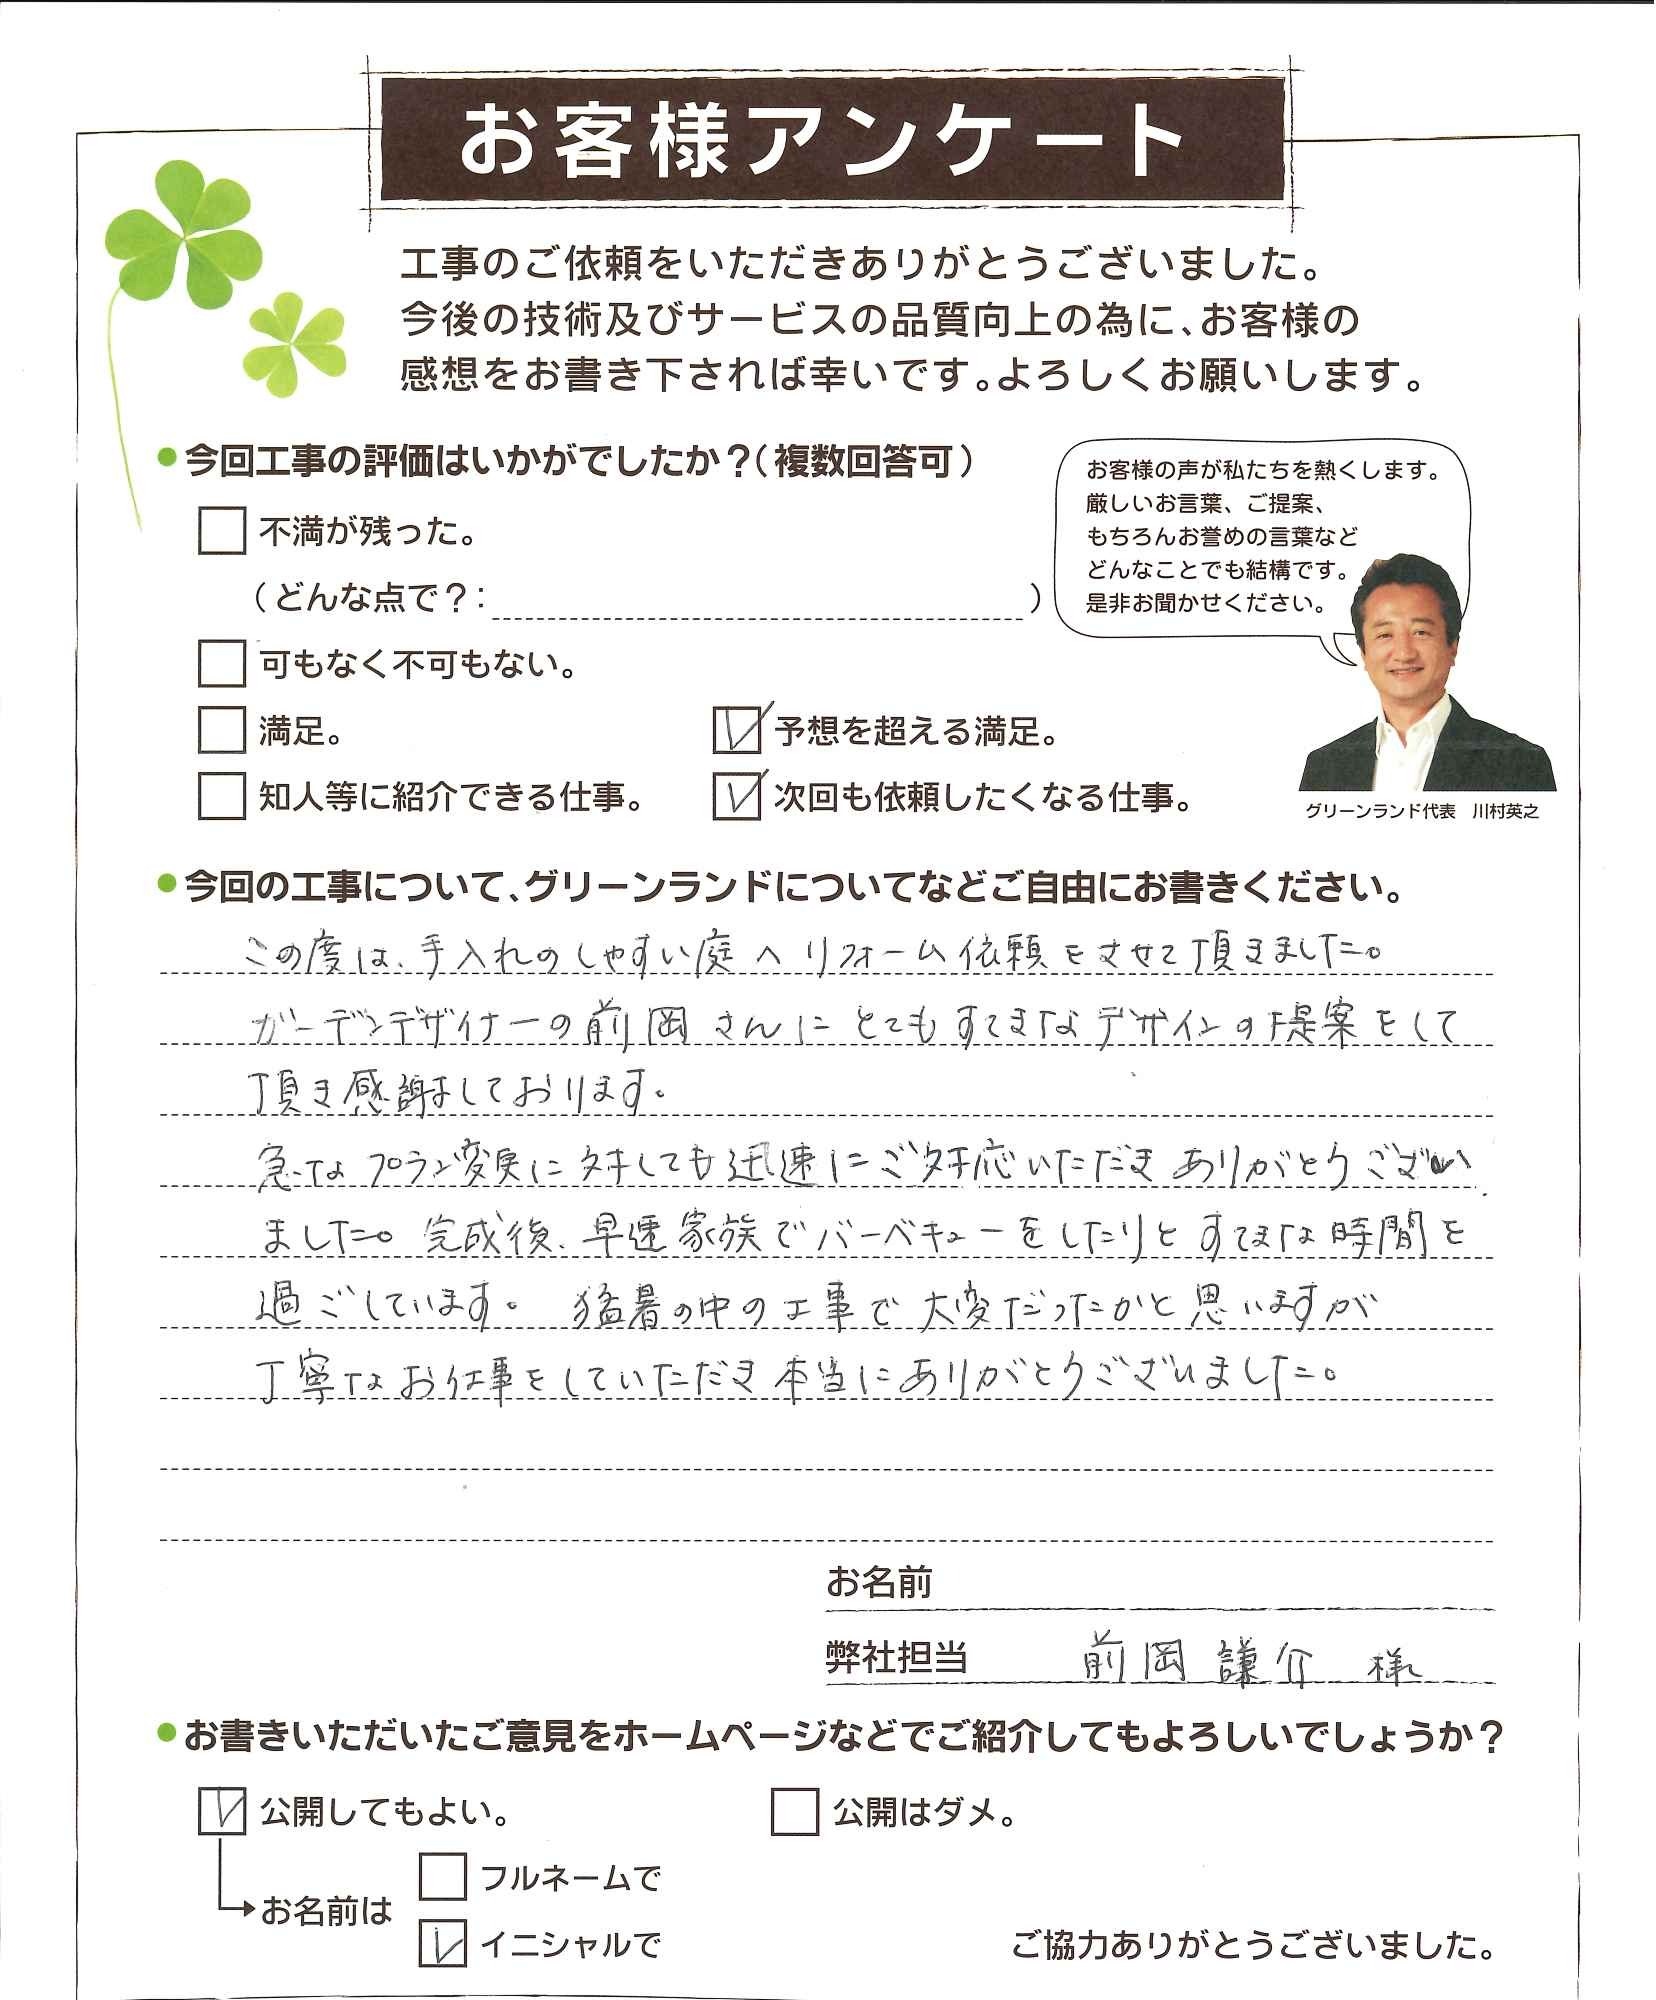 お客様アンケート
工事のご依頼をいただきありがとうございました。
今後の技術及びサービスの品質向上の為に、お客様の
感想をお書き下されば幸いです。よろしくお願いします。
●今回工事の評価はいかがでしたか？（複数回答可）
不満が残った。
（どんな点で？：　　　）
可もなく不可もない。
満足。
予想を超える満足。
知人等に紹介できる仕事。
次回も依頼したくなる仕事。
お客様の声が私たちを熱くします。
厳しいお言葉、ご提案、
もちろんお誉めの言葉など
どんなことでも結構です。
是非お聞かせください。
グリーンランド代表　川村英之
●今回の工事について、グリーンランドについてなどご自由にお書きください。
この度は、手入れのしやすい庭へリフォーム依頼をさせて頂きました。
ガーデンデザイナーの前岡さんにとてもすてきなデザインの提案をして
頂き感謝しております。
急なプラン変更に対しても迅速にご対応いただきありがとうござい
ました。完成後、早速家族でバーベキューをしたりとすてきな時間を
過ごしています。猛暑の中の工事で大変だったかと思いますが
丁寧なお仕事をしていただき本当にありがとうございました。
お名前
弊社担当　前岡 謙介 様
●お書きいただいたご意見をホームページなどでご紹介してもよろしいでしょうか？
公開してもよい。
公開はダメ。
お名前は
フルネームで
イニシャルで
ご協力ありがとうございました。